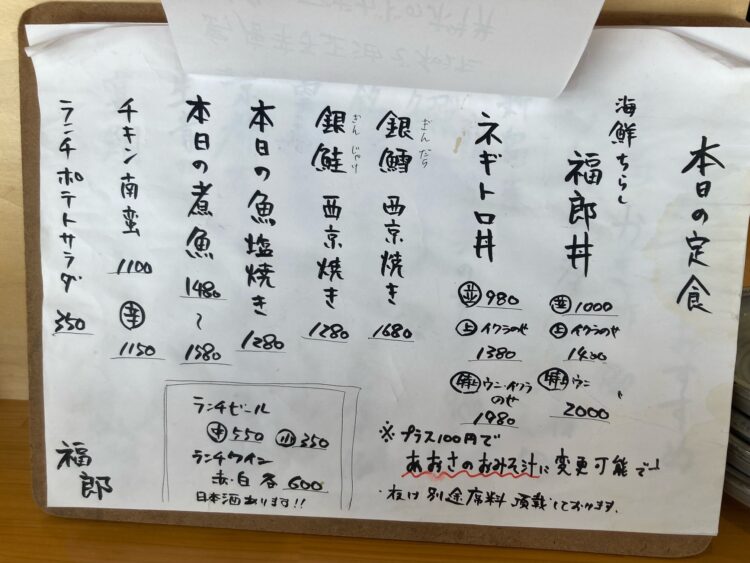 本日の定食
海鮮ちらし
福郎丼
並 1000
上 イクラのせ
1400
特 ウニ 〃
2000
ネギトロ丼
並 980
上 イクラのせ
1380
特 ウニ・イクラのせ
1980
ぎんだら
銀鱈 西京焼き
1680
ぎんじゃけ
銀鮭 西京焼き
1280
本日の魚塩焼き
1280
本日の煮魚
1480
〜
1580
チキン南蛮
1100
辛
1150
ランチポテトサラダ
350
※プラス100円で
あおさのおみそ汁に変更可能です
・夜は別途席料頂戴しております。
ランチビール
中 550 小 350
ランチワイン
赤・白 各 600
日本酒あります!!
福郎